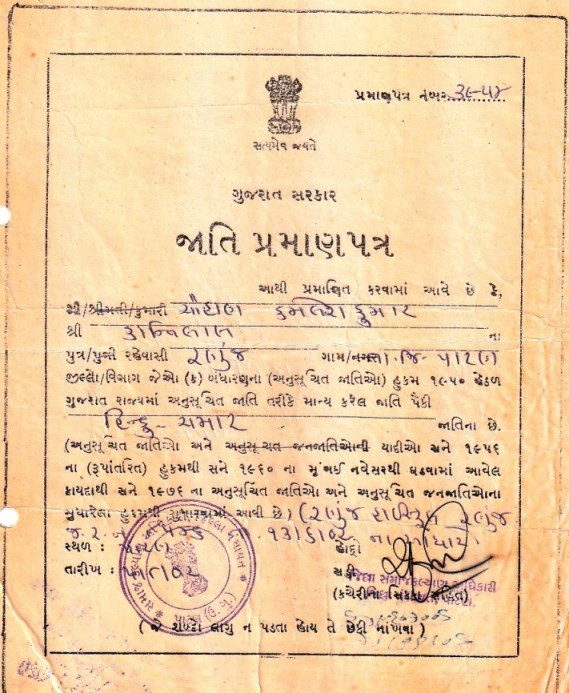 પ્રમાણપત્ર નંબર ૩૯૫૪
સત્યમેવ જયતે
ગુજરાત સરકાર
જાતિ પ્રમાણપત્ર
આથી પ્રમાણિત કરવામાં આવે છે કે,
શ્રી/શ્રીમતી/કુમારી ચૌહાણ કમલેશકુમાર
શ્રી કાન્તિલાલ ના
પુત્ર/પુત્રી રહેવાસી રણુંજ ગામ/નગર તા.જિ- પાટણ
જીલ્લો/વિભાગ જેઓ (ક) બંધારણના (અનુસૂચિત જાતિઓ) હુકમ ૧૯૫૦ હેઠળ
ગુજરાત રાજ્યમાં અનુસૂચિત જાતિ તરીકે માન્ય કરેલ જાતિ પૈકી
હિન્દુ - ચમાર જાતિના છે.
(અનુસૂચિત જાતિઓ અને અનુસૂચત જનજાતિઓની યાદીઓ સને ૧૯૫૬
ના (રૂપાંતરિત) હુકમથી સને ૧૯૬૦ ના મુંબઈ નવેસરથી ઘડવામાં આવેલ
કાયદાથી સને ૧૯૭૬ ના અનુસૂચિત જાતિઓ અને અનુસૂચિત જનજાતિઓના
સુધારેલા હુકમથી સુધારવામાં આવી છે) (રણુંજ હાઈસ્કૂલ રણુંજ
જ.ર.નં. ૧૩/૬/૦૨ ના
સ્થળ : પાટણ હોદ્દો
તારીખ : સહી
જિલ્લા સમાજકલ્યાણ અધિકારી
(કચેરીના સિક્કા સહિત)
( જે શબ્દો લાગુ ન પડતા હોય તે છેકી નાંખવા )